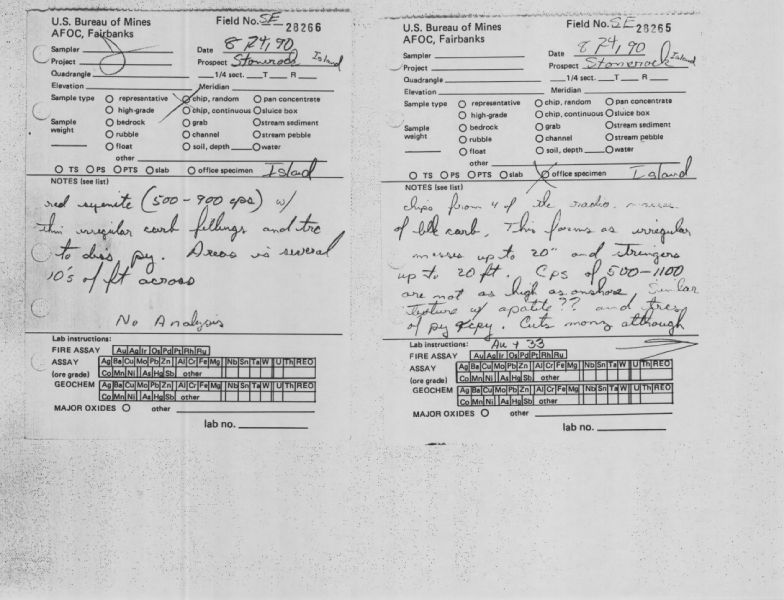 U.S. Bureau of Mines
AFOC, Fairbanks
Field No. SE 28266
Sampler
Date 8/24/90
Project
Prospect Stonerock Island
Quadrangle 1/4 sect. T R
Elevation Meridian
Sample type O representative O chip, random O pan concentrate
O high-grade O chip, continuous O sluice box
Sample weight O bedrock O grab O stream sediment
O rubble O channel O stream pebble
O float O soil, depth O water
other
O TS O PS O PTS O slab O office specimen Island
NOTES (see list)
red syenite (500-900 cps) w/
thin irregular carb fillings and trc
to diss py. Areas is several
10's of ft across
No Analysis
Lab instructions:
FIRE ASSAY Au Ag Ir Os Pd Pt Rh Ru
ASSAY Ag Ba Cu Mo Pb Zn Al Cr Fe Mg Nb Sn Ta W U Th REO
(ore grade) Co Mn Ni As Hg Sb other
GEOCHEM Ag Ba Cu Mo Pb Zn Al Cr Fe Mg Nb Sn Ta W U Th REO
Co Mn Ni As Hg Sb other
MAJOR OXIDES O other
lab no.
U.S. Bureau of Mines
AFOC, Fairbanks
Field No. SE 28265
Sampler
Date 8/24/90
Project
Prospect Stonerock Island
Quadrangle 1/4 sect. T R
Elevation Meridian
Sample type O representative O chip, random O pan concentrate
O high-grade O chip, continuous O sluice box
Sample weight O bedrock O grab O stream sediment
O rubble O channel O stream pebble
O float O soil, depth O water
other
O TS O PS O PTS O slab O office specimen Island
NOTES (see list)
chips from 4 of the radio. masses
of blk carb. This forms as irregular
masses up to 20" and stringers
up to 20 ft. Cps of 500-1100
are not as high as onshore Similar
texture w/ apatite?? and trcs
of py &cpy. Cuts monz although
Lab instructions: Au + 33
FIRE ASSAY Au Ag Ir Os Pd Pt Rh Ru
ASSAY Ag Ba Cu Mo Pb Zn Al Cr Fe Mg Nb Sn Ta W U Th REO
(ore grade) Co Mn Ni As Hg Sb other
GEOCHEM Ag Ba Cu Mo Pb Zn Al Cr Fe Mg Nb Sn Ta W U Th REO
Co Mn Ni As Hg Sb other
MAJOR OXIDES O other
lab no.